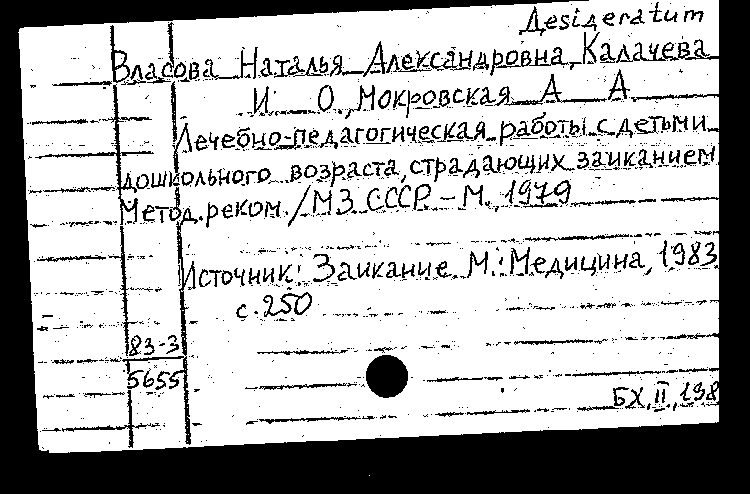 Desideratum
Власова Наталья Александровна, Калачева
И О., Мокровская А А
Лечебно-педагогическая работы с детьми
дошкольного возраста, страдающих заиканием
Метод.реком. /МЗ СССР. - М., 1979
Источник: Заикание. М.: Медицина, 1983
с. 250
83-3
5655
БХ, II, 198